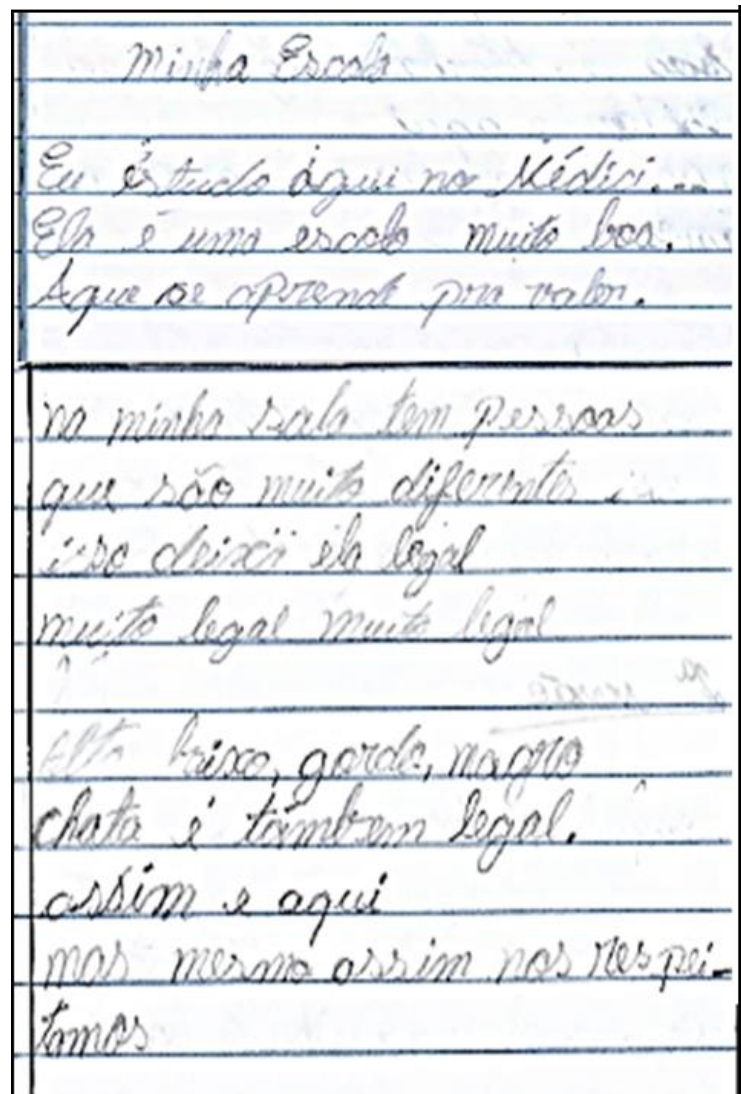 Minha Escola
Eu éstudo áqui no Médici...
Ela é uma escola muito boa.
Aqui se aprende pra valer.
na minha sala tem pessoas
que são muito diferentes
isso deixa ela legal
muito legal muito legal
Alto baixo, gordo, magro
chato é também legal.
assim e aqui
mas mesmo assim nos respei-
tamos